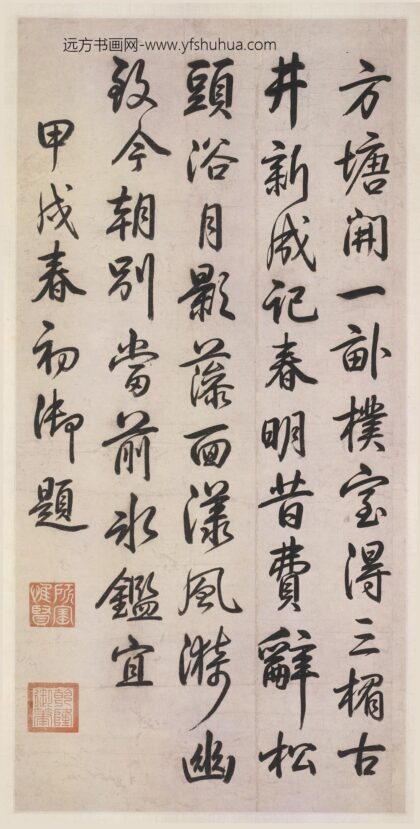 远方书画网-www.yfshuhua.com
方塘開一畝樸室得三楣古
井新成記春明昔費辭松
頭浴月影藻面漾風漪幽
致今朝別當前冰鑑宜
甲戌春初御題
所寶惟賢
乾隆御筆